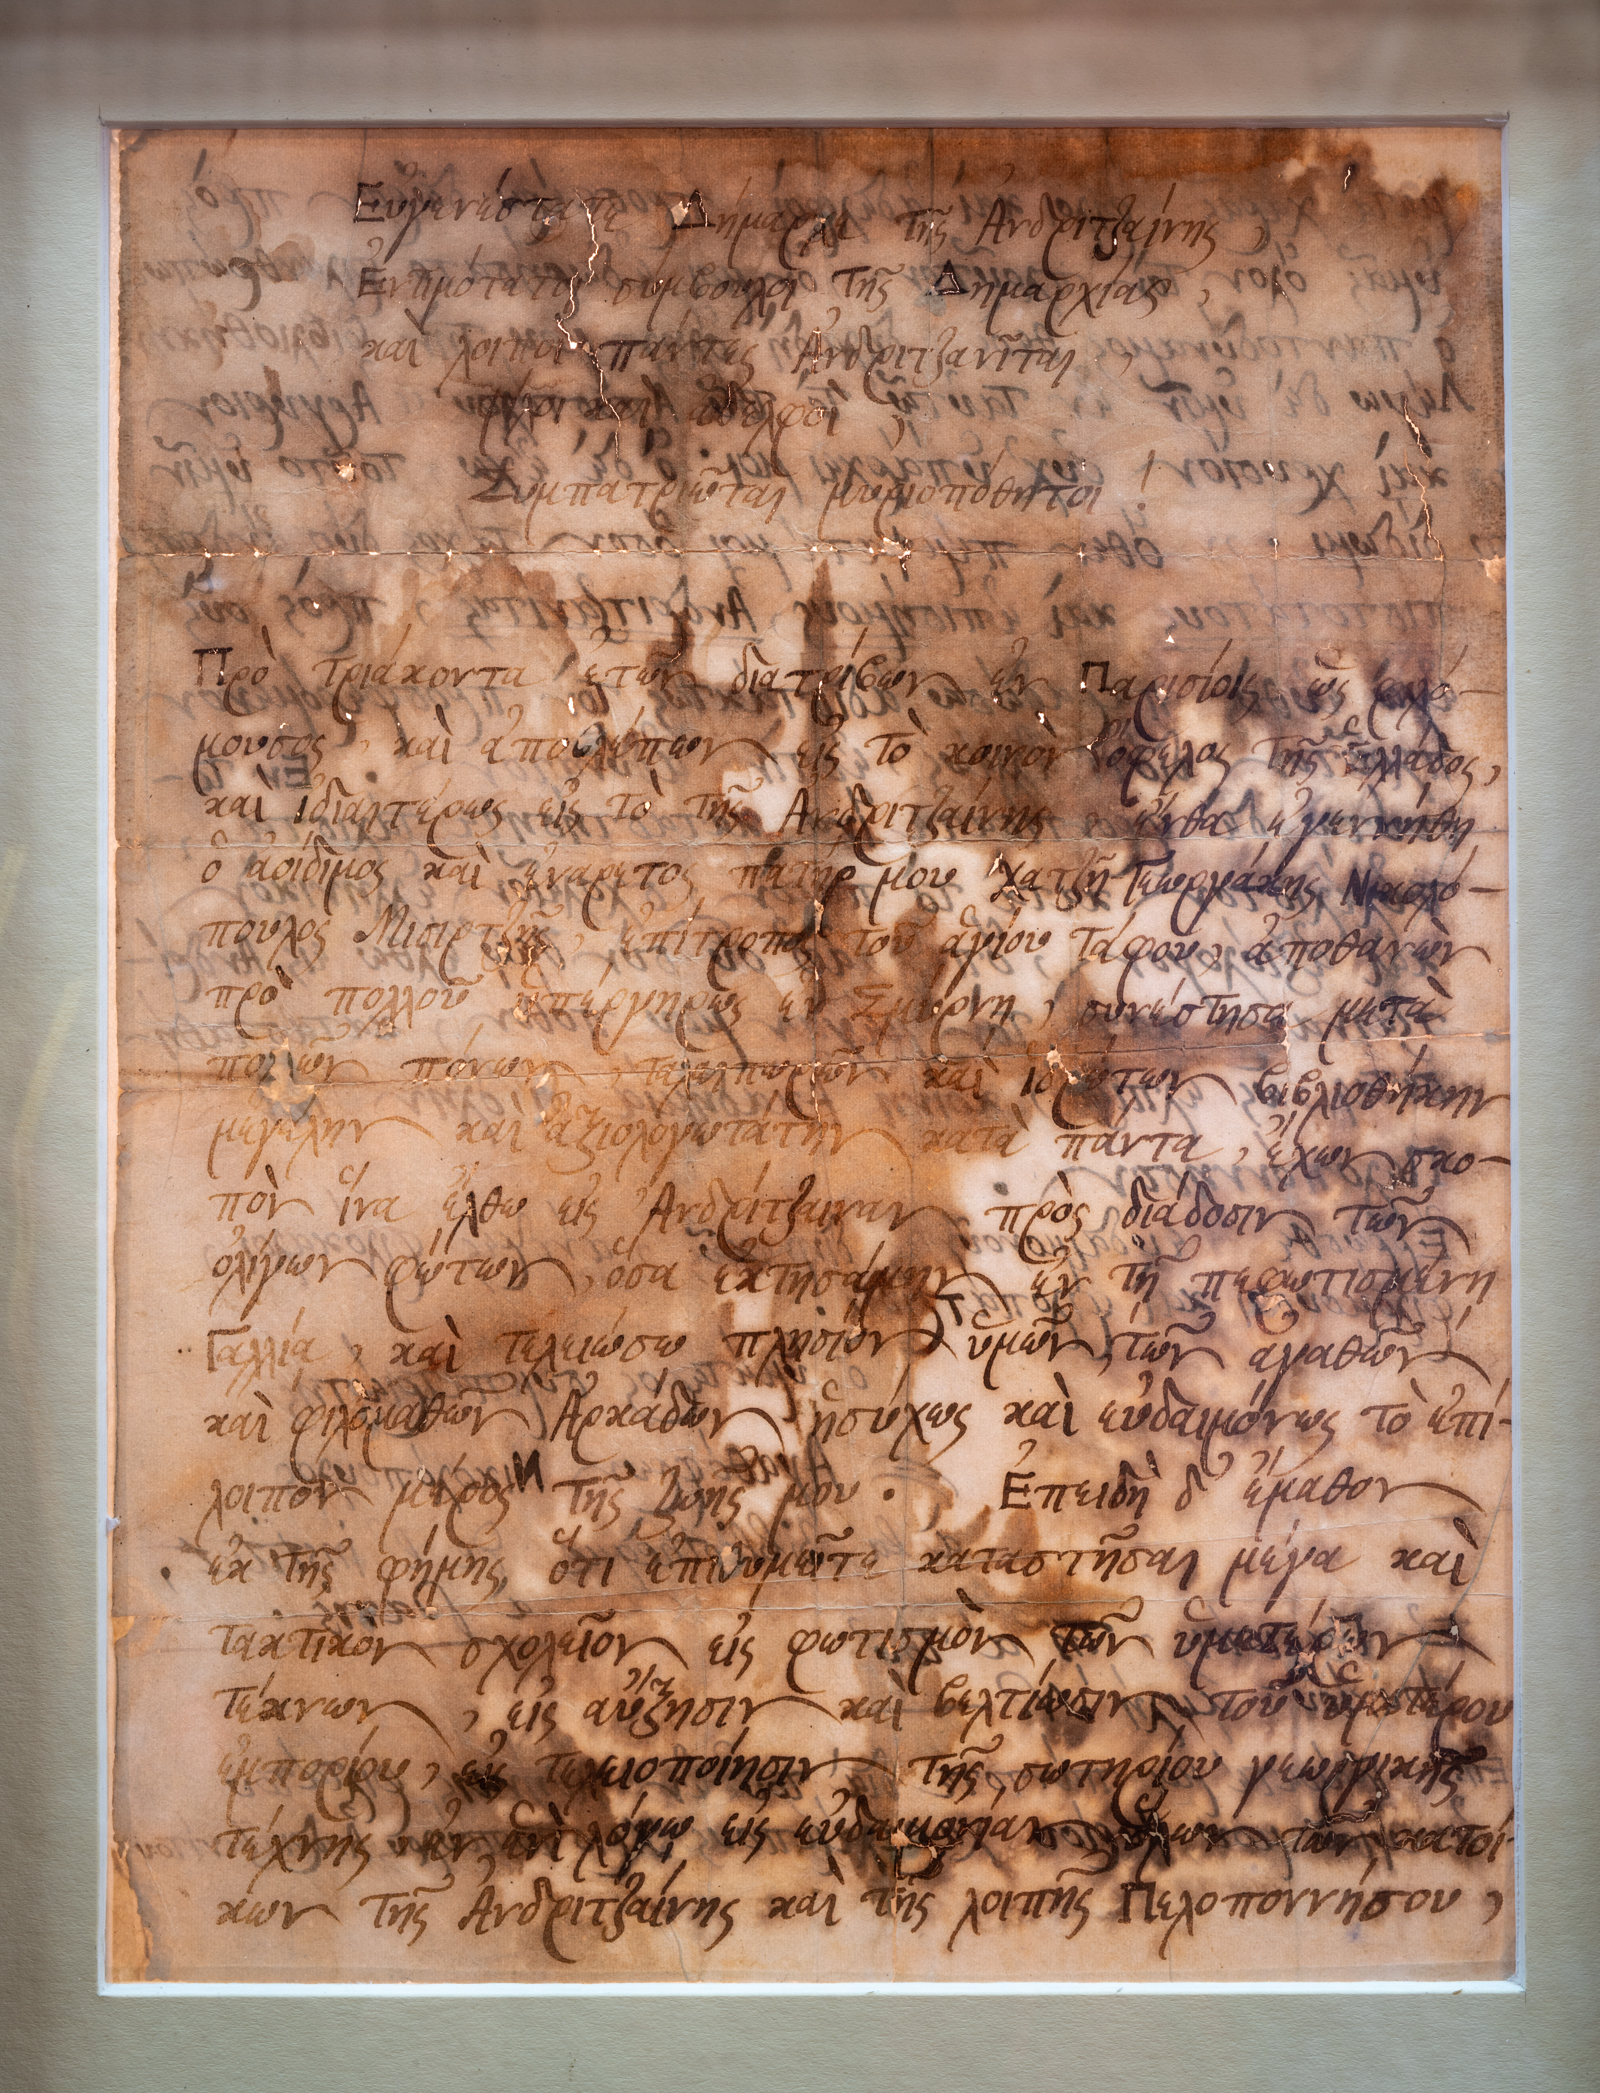 Εὐγενέστατε Δήμαρχε τῆς Ἀνδριτζαίνης,
Ἐντιμότατοι σύμβουλοι τῆς Δημαρχίας,
καὶ λοιποὶ πάντες Ἀνδριτζανῖται,
φίλοι καὶ ἀδελφοί,
Συμπατριῶται μυριοπόθητοι!
Πρὸ τριάκοντα ἐτῶν διατρίβων ἐν Παρισίοις ὡς φιλό-
μουσος, καὶ ἀποβλέπων εἰς τὸ κοινὸν ὄφελος τῆς Ἑλλάδος,
καὶ ἰδιαιτέρως εἰς τὸ τῆς Ἀνδριτζαίνης ἔνθα ἐγεννήθη
ὁ ἀοίδιμος καὶ ἐνάρετος πατήρ μου Χατζῆ-Γεωργάκης Νικολό-
πουλος Μισιρτζῆς, ἐπίτροπος τοῦ ἁγίου τάφου, ἀποθανὼν
πρὸ πολλοῦ ὑπέργηρως ἐν Σμύρνῃ, συνέστησα μετὰ
πολλῶν πόνων, ταλαιπωριῶν καὶ ἱδρώτων βιβλιοθήκην
μεγάλην καὶ ἀξιολογωτάτην κατὰ πάντα, ἔχων σκο-
πὸν ἵνα ἔλθω εἰς Ἀνδρίτζαιναν πρὸς διάδοσιν τῶν
ὀλίγων φώτων, ὅσα ἐκτησάμην ἐν τῇ πεφωτισμένῃ
Γαλλίᾳ, καὶ τελειώσω πλησίον ὑμῶν, τῶν ἀγαθῶν
καὶ φιλομαθῶν Ἀρκάδων ἡσύχως καὶ εὐδαιμόνως τὸ ἐπί-
λοιπον μέρος τῆς ζωῆς μου. Ἐπειδὴ δ' ἔμαθον
ἐκ τῆς φήμης, ὅτι ἐπιθυμεῖτε καταστῆσαι μέγα καὶ
τακτικὸν σχολεῖον εἰς φωτισμὸν τῶν ὑμετέρων
τέκνων, εἰς αὔξησιν καὶ βελτίωσιν τοῦ ὑμετέρου
ἐμπορίου, εἰς τελειοποίησιν τῆς σωτηρίου γεωργικῆς
τέχνης ἐν ἑνὶ λόγῳ εἰς εὐδαιμονίαν ὅλων τῶν κατοί-
κων τῆς Ἀνδριτζαίνης καὶ τῆς λοιπῆς Πελοποννήσου,